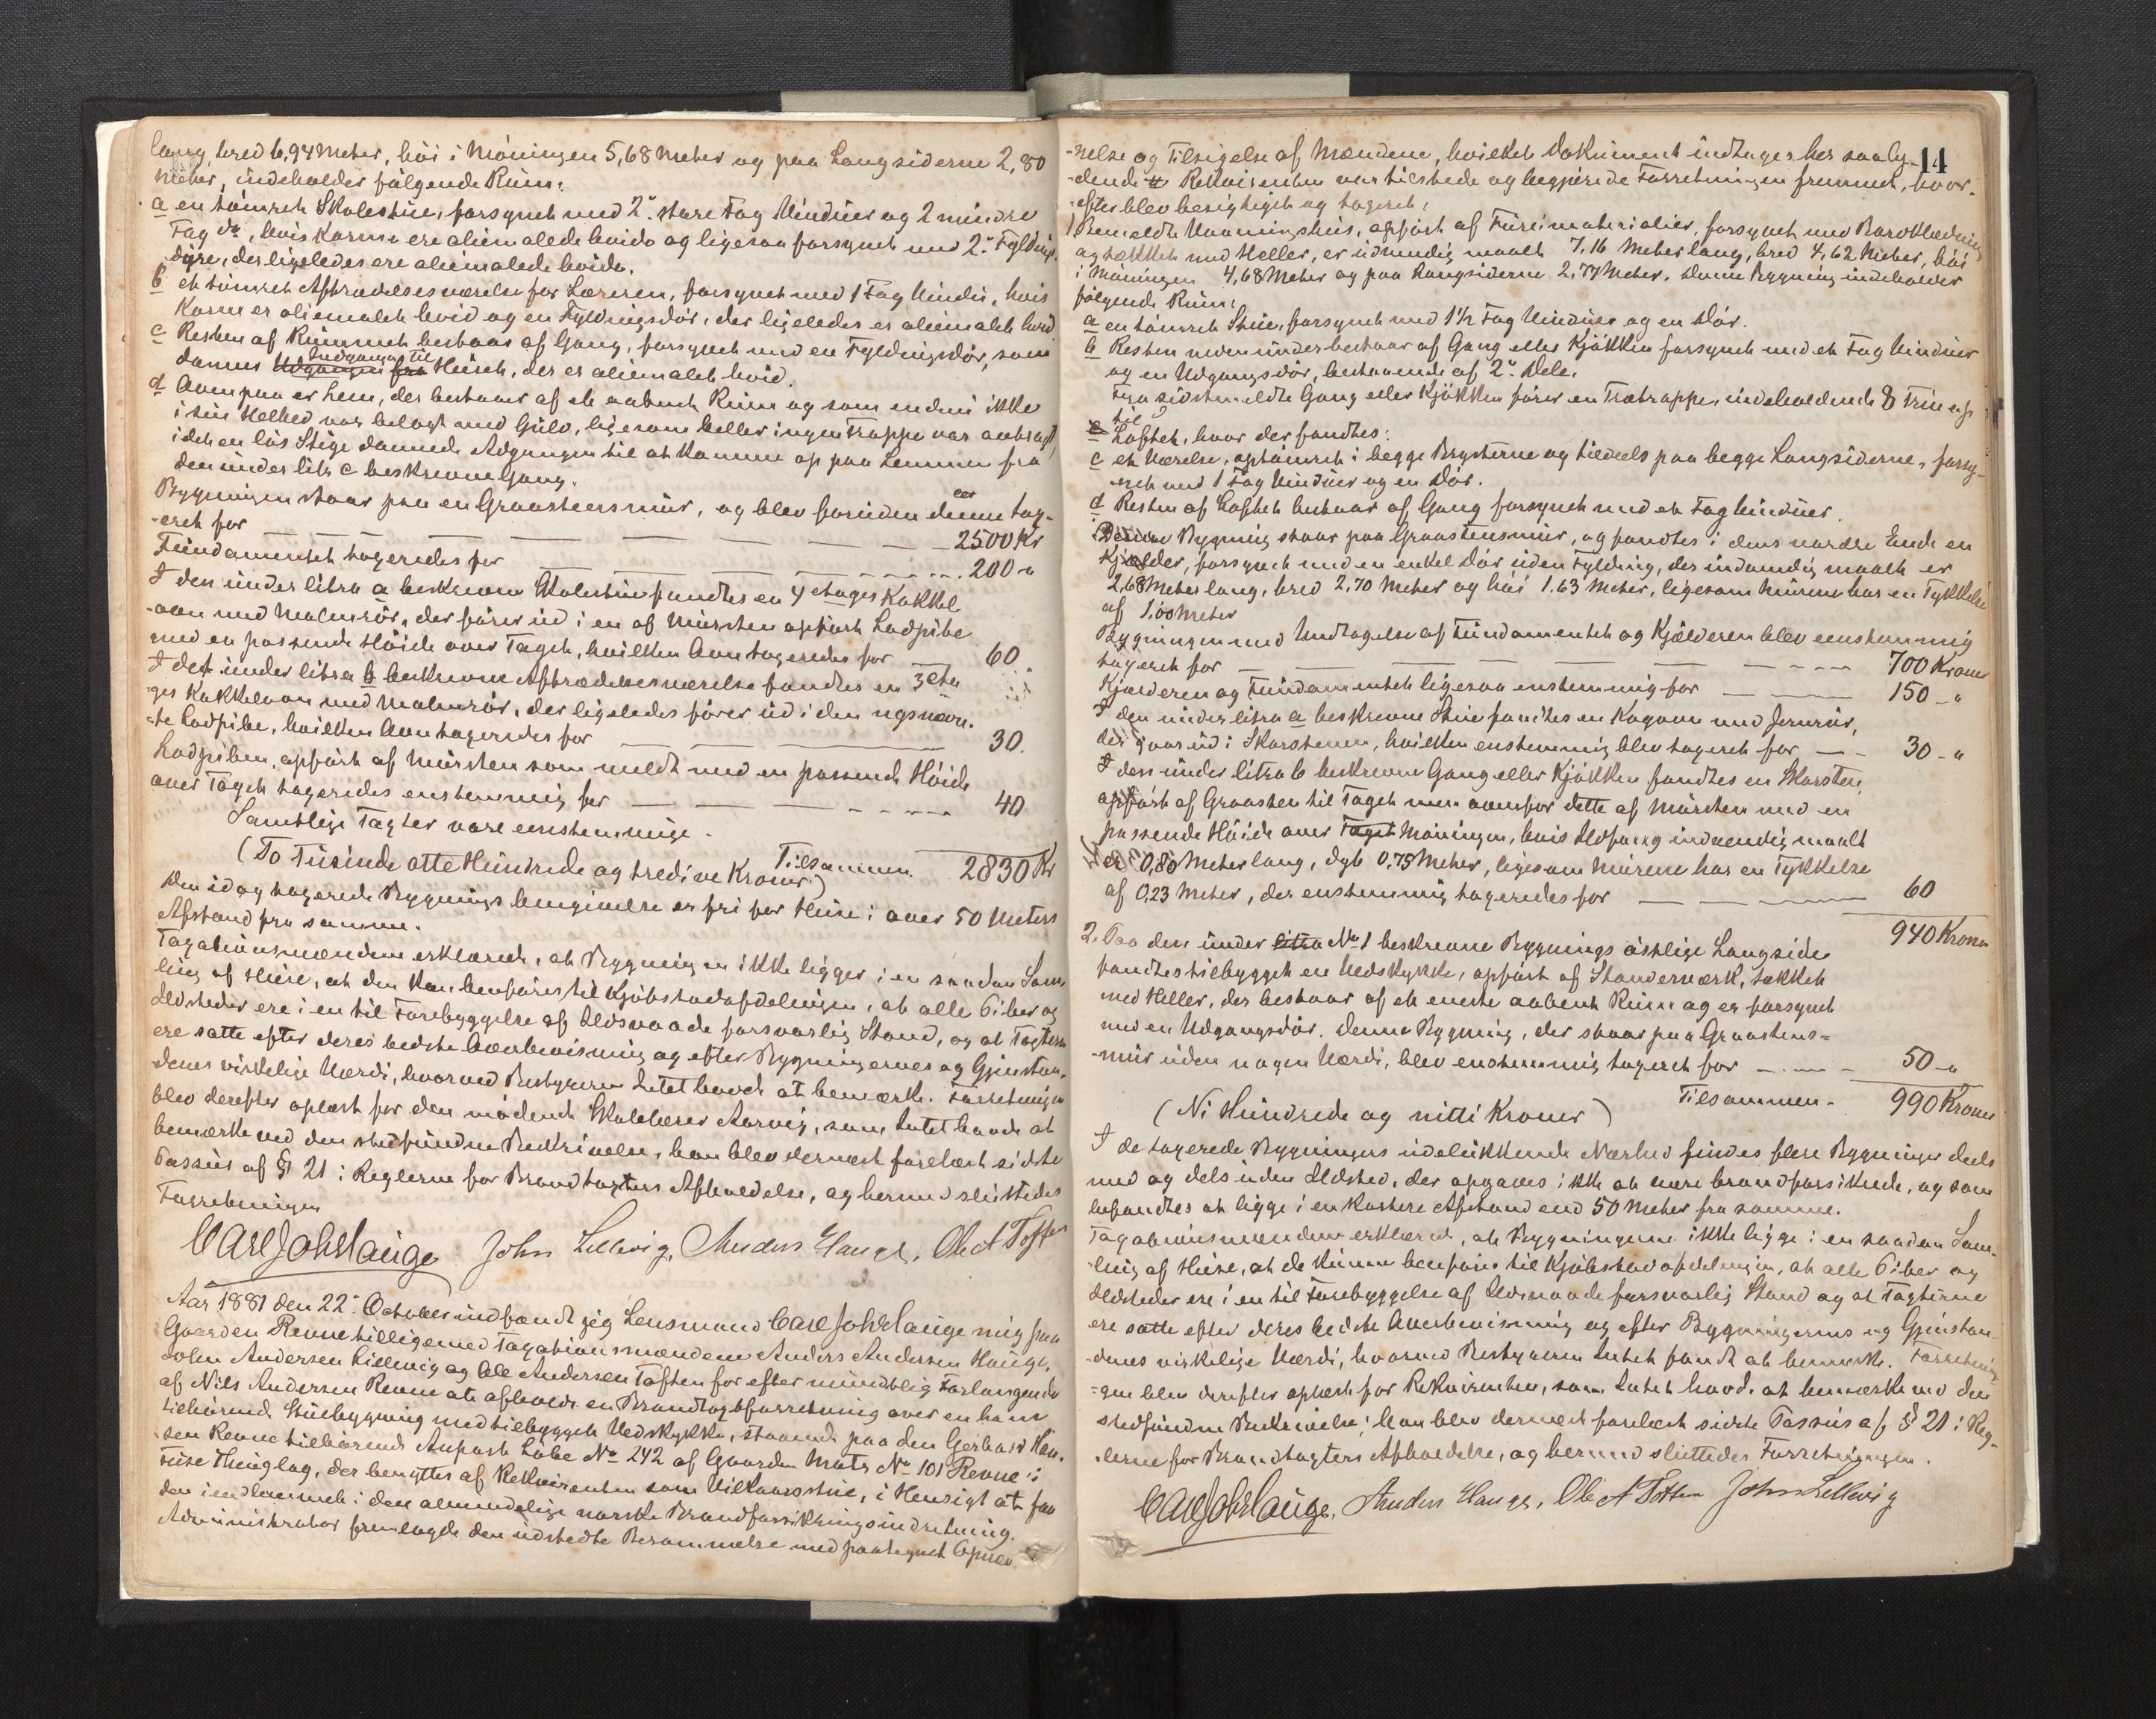 lang, bred 6,94 Meter, höi i Möningen 5,68 Meter og paa Langsiderne 2,80
Meter, indeholder følgende Rum:
a en tömret Skolestue, forsynet med 2de store Fag Vinduer og 2 mindre
Fag do, hvis Karme ere oliemalede hvide og ligesaa forsynet med 2de Fyldings-
döre, der ligeledes ere oliemalede hvide.
b et tömret Aftrædelsesværelse for Læreren, forsynet med 1 Fag Vindu, hvis
Karm er oliemalet hvid og en Fyldingsdör, der ligeledes er oliemalet hvid
c Resten af Rummet bestaar af Gang, forsynet med en Fyldingsdör, som
danner Udgangen fra Indgangen til Huset, der er oliemalet hvid.
d Ovenpaa er Lem, der bestaar af et aabent Rum og som endnu ikke
i sin Helhed var belagt med Gulv, ligesom heller ingen Trappe var anbragt,
idet en lös Stige dannede Adgangen til at komme op paa Lemmen fra
den under litr c beskrevne Gang.
Bygningen staar paa en Graasteensmur, og blev foruden denne tax-
eret for 2500 Kr
Fundamentet taxeredes for 200 "
I den under litra a beskrevne Skolestue fandtes en 4 etages Kakkel
ovn med Malmrör, der förer ud i en af Mursten opfört Lodpibe
med en passende Höide over Taget, hvilken Ovn taxeredes for 60.
I det under litra b beskrevne Aftrædelsesværelse fandtes en 3 eta
ges Kakkelovn med Malmrör, der ligeledes förer ud i den ngsnævn-
te Lodpibe, hvilken Ovn taxeredes for 30.
Lodpiben, opfört af Mursten som meldt med en passende Höide
over Taget taxeredes enstemmig for 40
Samtlige Taxter vare eenstemmige.
Tilsammen 2830 Kr
(To Tusinde otte Hundrede og tredive Kroner)
Den idag taxerede Bygnings Omgivelse er fri for Huse i over 50 Meters
Afstand fra samme.
Taxationsmændene erklærede, at Bygningen ikke ligger i en saadan Sam-
ling af Huse, at den kan henföres til Kjöbstadafdelingen, at alle Piber og
Ildsteder ere i en til Forebyggelse af Ildsvaade forsvarlig Stand, og at Taxterne
ere satte efter deres bedste Overbevisning og efter Bygningernes og Gjenstan-
denes virkelige Værdi, hvorved Bestyreren Intet havde at bemærke. Forretningen
blev derefter oplæst for den mödende Skolelærer Aarvig, som Intet havde at
bemærke ved den stedfundne Beskrivelse, han blev dernæst forelæst sidste
Passus af § 21 i Reglerne for Brandtaxters Afholdelse, og hermed sluttedes
Forretningen
Carl Joh Hauge John Lillevig, Anders Hauge, Ole A Toften
Aar 1881 den 22de October indfandt jeg Lensmand Carl Joh Hauge mig paa
Gaarden Revne tilligemed Taxationsmændene Anders Andersen Hauge,
John Andersen Lillevig og Ole Andersen Toften for efter mundtlig Forlangende
af Nils Andersen Revne at afholde en Brandtaxtforretning over en ham
tilhörende Stuebygning med tilbygget Vedskykke, staaende paa den Gerhard Han-
sen Revne tilhörende Anpart Löbe No 242 af Gaarden Matr No 101 Revne i
Fuse Thinglag, der benyttes af Rekvirenten som Vilkaarsstue, i Hensigt at faa
den indlemmet i den almindelige norske Brandforsikringsindretning.
Administrator fremlagde den udstedte Berammelse med paategnet Opnæv-
14
-nelse og Tilsigelse af Mændene, hvilket Dokument indtages her saaly-
-dende. Rekvirenten var tilstede og begjærede Forretningen fremmet, hvor-
efter blev besigtiget og taxeret:
1) Bemeldte Vaaningshus, opfört af Furumaterialier, forsynet med Bordklædning
og tækket med Heller, er udvendig maalt 7,16 Meter lang, bred 4,62 Meter, höi
i Möningen 4,68 Meter og paa Langsiderne 2,77 Meter. Denne Bygning indeholder
følgende Rum:
a en tömret Stue, forsynet med 1½ Fag Vinduer og en Dör.
b Resten nedenunder bestaar af Gang eller Kjökken forsynet med et Fag Vinduer
og en Udgangsdör, bestaaende af 2de Dele.
Fra sidstmeldte Gang eller Kjökken förer en Trætrappe, indeholdende 8 Trin op
til
Loftet, hvor der fandtes:
c et Værelse, optömret i begge Brysterne og tildeels paa begge Langsiderne, forsy-
net med 1 Fag Vinduer og en Dör.
d Resten af Loftet bestaar af Gang forsynet med et Fag Vinduer.
Denne Bygning staar paa Graasteensmur, og fandtes i dens nordre Ende en
Kjælder, forsynet med en enkel Dör uden Fylding, der indvendig maalt er
2,68 Meter lang, bred 2,70 Meter og höi 1.63 Meter, ligesom Murene har en Tykkelse
af 1.00 Meter
Bygningen med Undtagelse af Fundamentet og Kjælderen blev eenstemmig
taxeret for 700 Kroner
Kjælderen og Fundamentet ligesaa enstemmig for 150 - "
I den under litra a beskrevne Stue fandtes en Kogovn med Jernrör,
der gaar ud i Skorstenen, hvilken enstemmig blev taxeret for 30 - "
I den under litra b beskrevne Gang eller Kjökken fandtes en Skorsten,
opfört af Graasten til Taget men ovenfor dette af Mursten med en
passende Höide over Taget Möningen, hvis Ildsted indvendig maalt
er 0,80 Meter lang, dyb 0,75 Meter, ligesom Murene har en Tykkelse
af 0,23 Meter, der enstemmig taxeredes for 60
940 Kroner
2. Paa den under litra No 1 beskrevne Bygnings östlige Langside
fandtes tilbygget en Vedskykke, opfört af Standerværk, tækket
med Heller, der bestaar af et eneste aabent Rum og er forsynet
med en Udgangsdör. Denne Bygning, der staar paa Graasteens=
-mur uden nogen Værdi, blev enstemmig taxeret for 50 - "
Tilsammen - 990 Kroner
(Ni Hundrede og nitti Kroner)
I de taxerede Bygningers udelukkende Nærhed findes flere Bygninger deels
med og dels uden Ildsted, der opgaves ikke at være brandforsikrede, og som
befandtes at ligge i en kortere Afstand end 50 Meter fra samme.
Taxationsmændene erklærede, at Bygningerne ikke ligge i en saadan Sam-
-ling af Huse, at de kunne henföres til Kjöbstadafdelingen, at alle Piber og
Ildsteder ere i en til Forebyggelse af Ildsvaade forsvarlig Stand og at Taxterne
ere satte efter deres bedste Overbevisning og efter Bygningernes og Gjenstan
-denes virkelige Værdi, hvorved Bestyreren Intet fandt at bemærke. Forretnin-
-gen blev derefter oplæst for Rekvirenten, som Intet havde at bemærke ved den
stedfundne Beskrivelse; han blev dernæst forelæst sidste Passus af § 21 i Reg-
lerne for Brandtaxters Afholdelse, og hermed sluttedes Forretningen.
Carl Joh Hauge, Anders Hauge, Ole A Toften John Lillevig